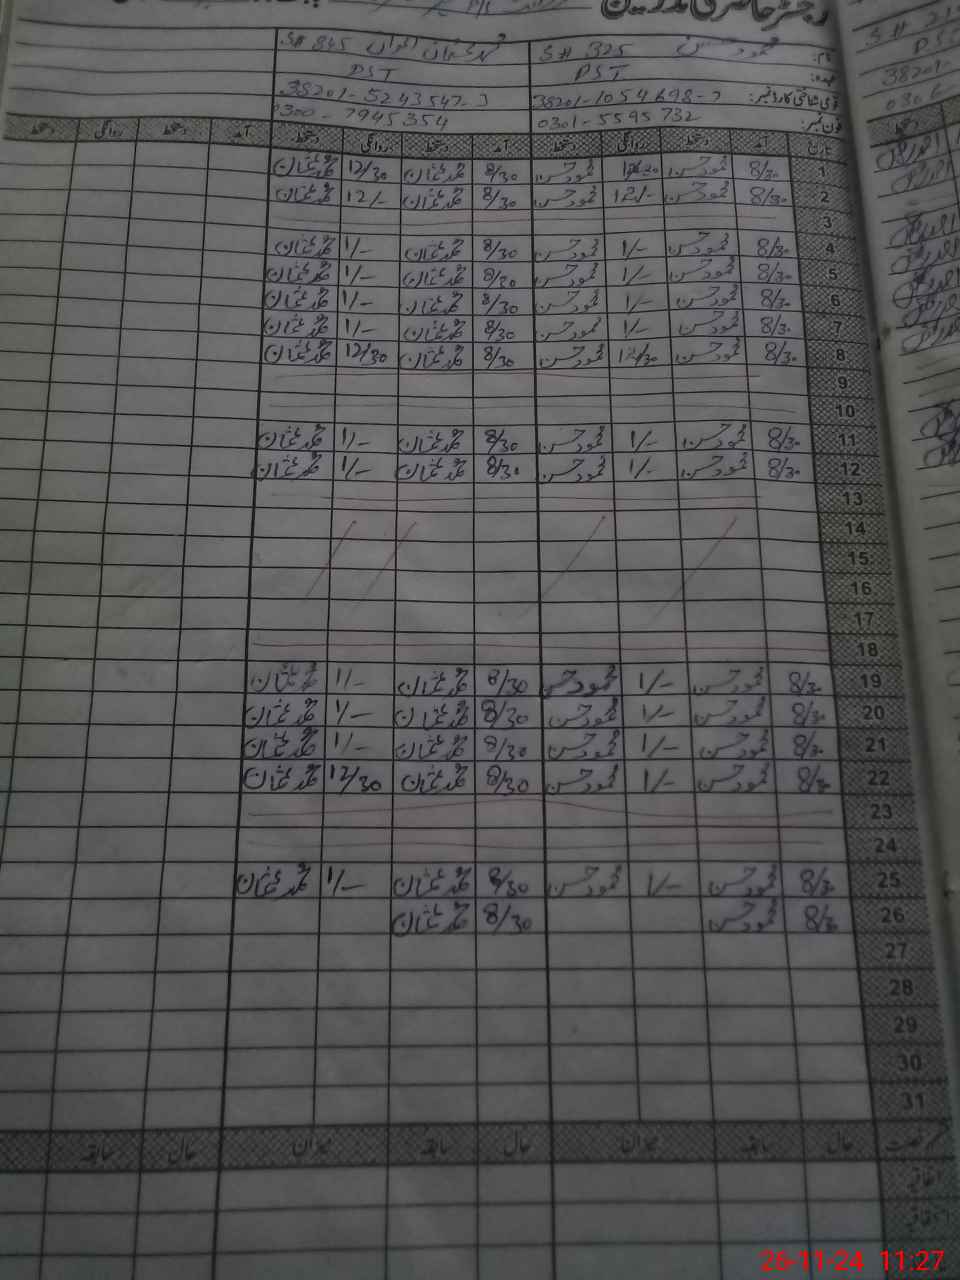 رجسٹر حاضری مدرسین
نام: محمود حسن S# 325 محمد عثمان اعوان S# 845
عہدہ: PST PST
قومی شناختی کارڈ نمبر: 38201-1054698-7 38201-5243547-3
فون نمبر: 0301-5595732 0300-7945354
تاریخ آمد دستخط روانگی دستخط آمد دستخط روانگی دستخط آمد دستخط روانگی دستخط
1 8/30 محمود حسن 12/30 محمود حسن 8/30 محمد عثمان 12/30 محمد عثمان
2 8/30 محمود حسن 12/- محمود حسن 8/30 محمد عثمان 12/- محمد عثمان
3
4 8/30 محمود حسن 1/- محمود حسن 8/30 محمد عثمان 1/- محمد عثمان
5 8/30 محمود حسن 1/- محمود حسن 8/30 محمد عثمان 1/- محمد عثمان
6 8/30 محمود حسن 1/- محمود حسن 8/30 محمد عثمان 1/- محمد عثمان
7 8/30 محمود حسن 1/- محمود حسن 8/30 محمد عثمان 1/- محمد عثمان
8 8/30 محمود حسن 12/30 محمود حسن 8/30 محمد عثمان 12/30 محمد عثمان
9
10
11 8/30 محمود حسن 1/- محمود حسن 8/30 محمد عثمان 1/- محمد عثمان
12 8/30 محمود حسن 1/- محمود حسن 8/30 محمد عثمان 1/- محمد عثمان
13
14
15
16
17
18
19 8/30 محمود حسن 1/- محمود حسن 8/30 محمد عثمان 1/- محمد عثمان
20 8/30 محمود حسن 1/- محمود حسن 8/30 محمد عثمان 1/- محمد عثمان
21 8/30 محمود حسن 1/- محمود حسن 8/30 محمد عثمان 1/- محمد عثمان
22 8/30 محمود حسن 1/- محمود حسن 8/30 محمد عثمان 12/30 محمد عثمان
23
24
25 8/30 محمود حسن 1/- محمود حسن 8/30 محمد عثمان 1/- محمد عثمان
26 8/30 محمود حسن 8/30 محمد عثمان
27
28
29
30
31
رخصت حال سابقہ میزان حال سابقہ میزان حال سابقہ
اتفاقیہ
26-11-24 11:27